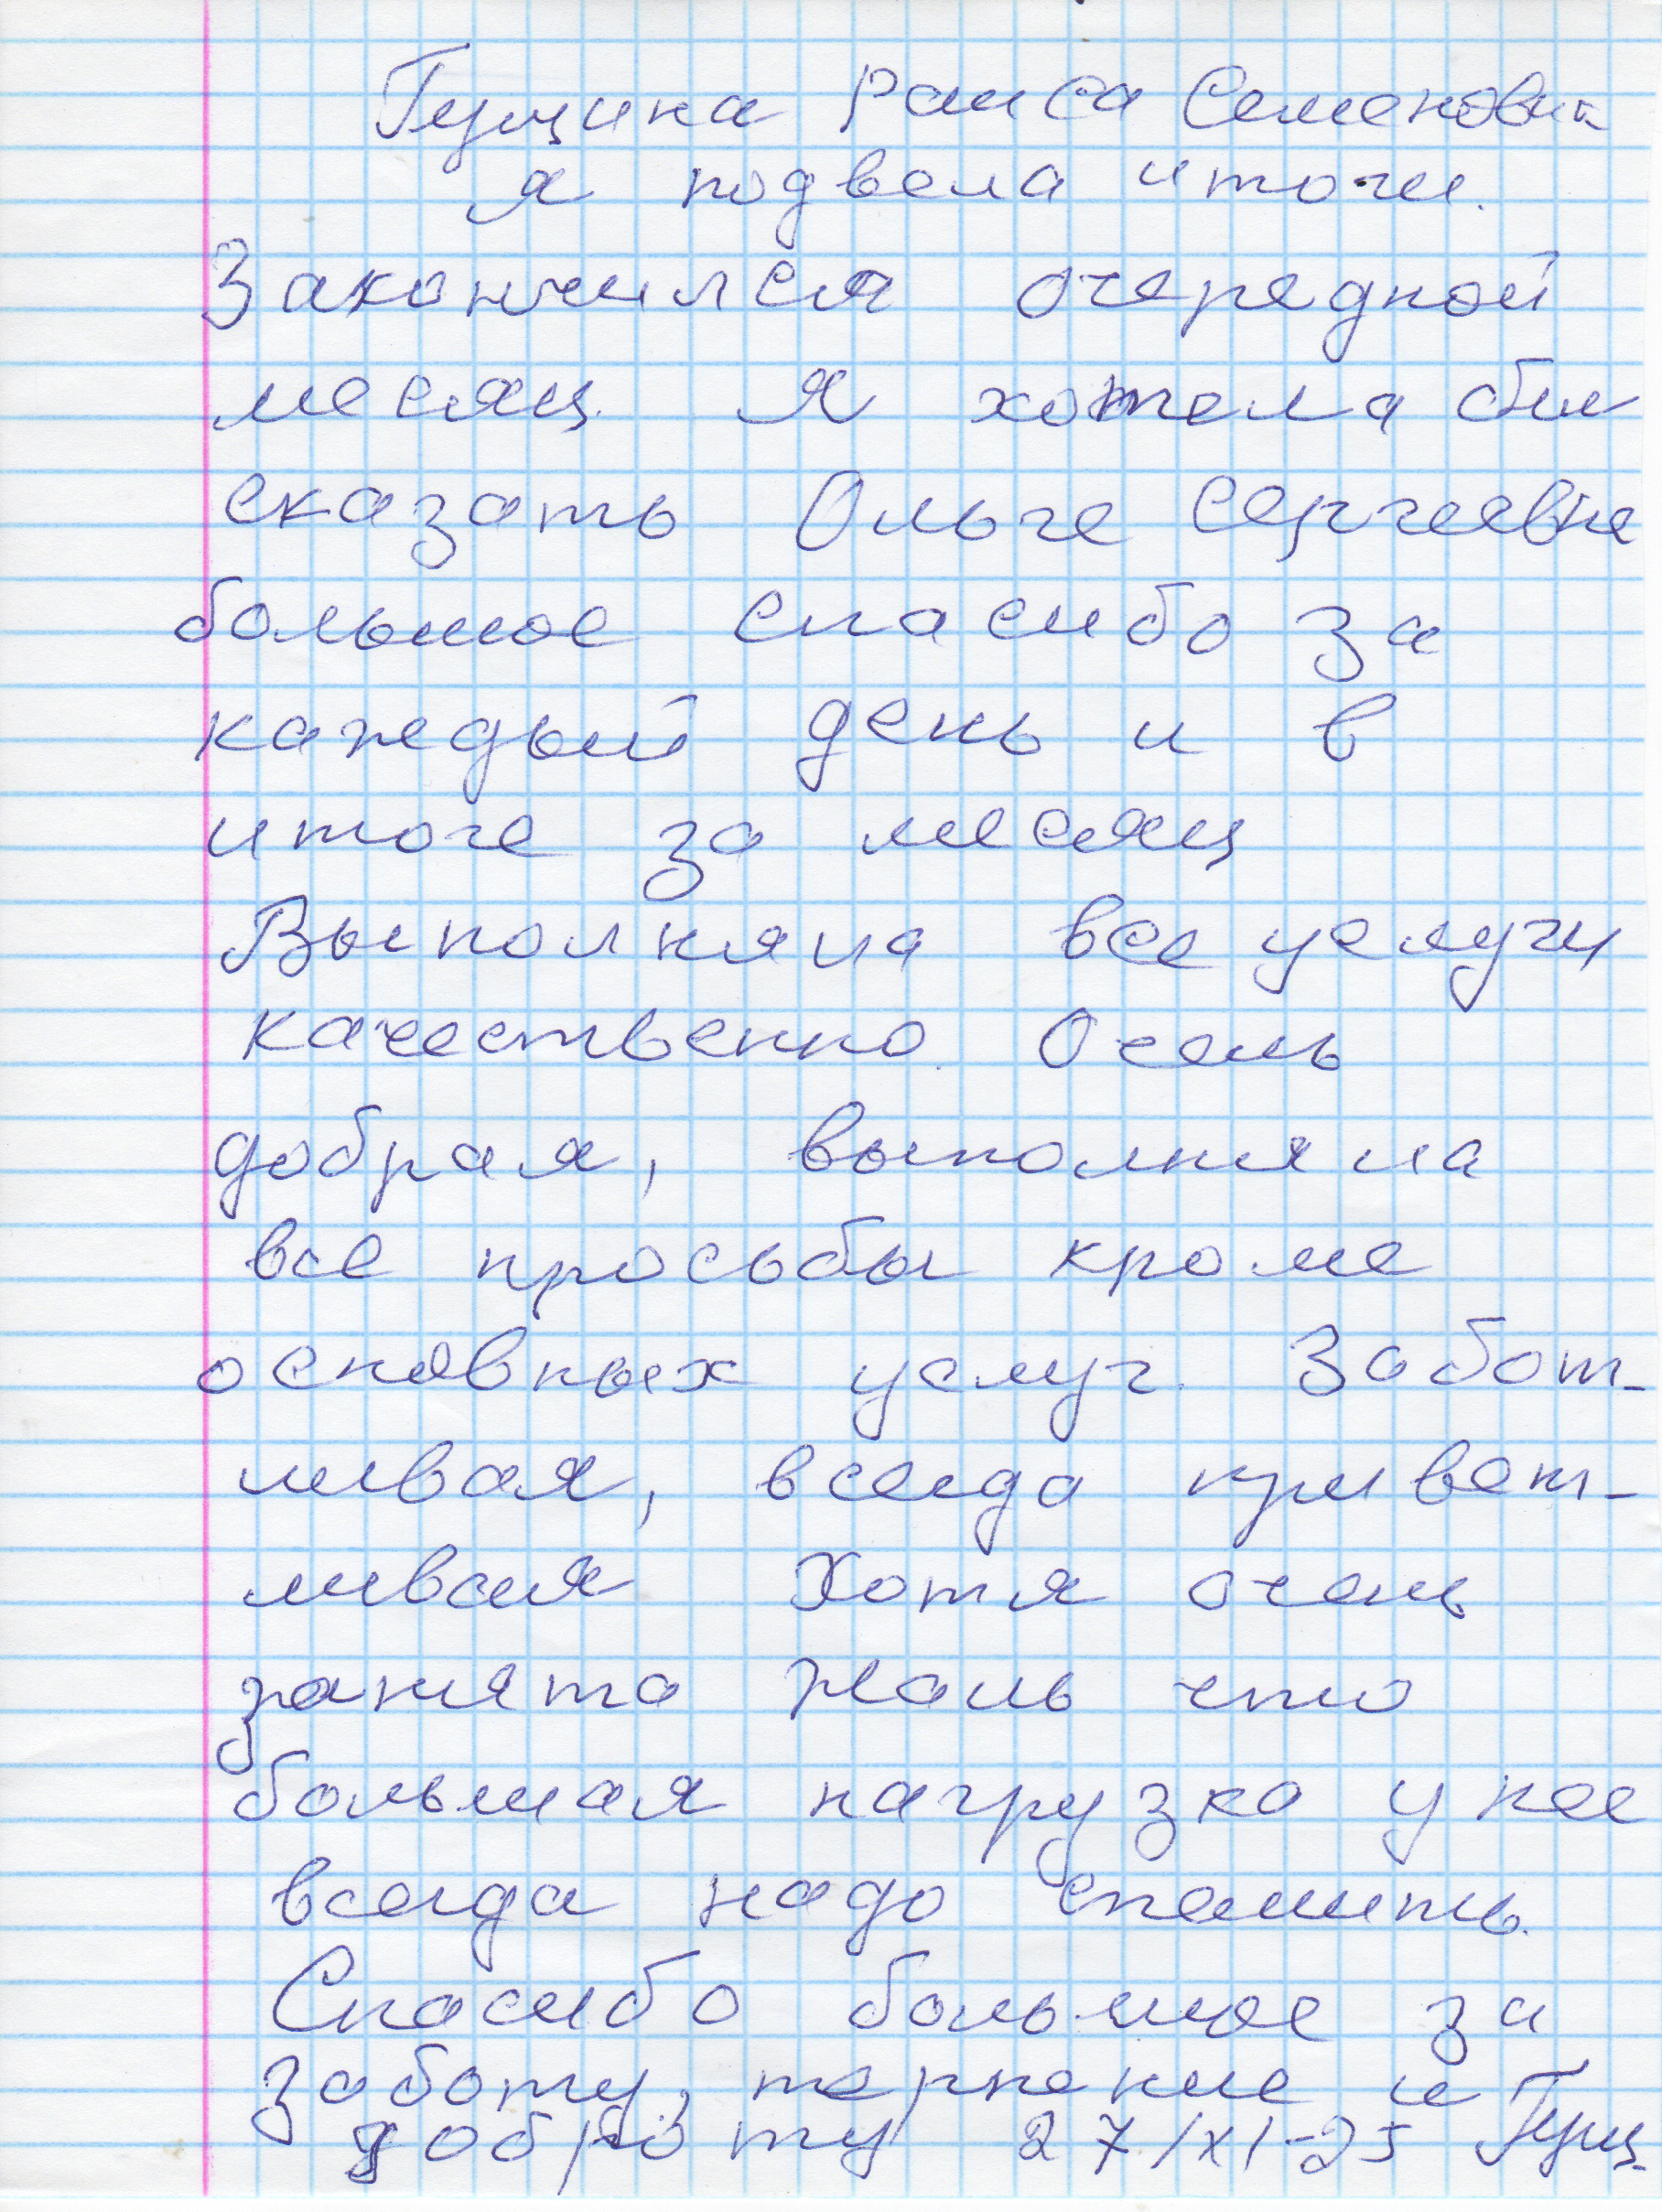 Гущина Раиса Семеновна
я подвела итоги.
Закончился очередной
месяц. Я хотела бы
сказать Ольге Сергеевне
большое спасибо за
каждый день и в
итоге за месяц
Выполняла все услуги
качественно. Очень
добрая, выполняла
все просьбы кроме
основных услуг. Забот-
ливая, всегда привет-
ливая Хотя очень
занята жаль что
большая нагрузка у нее
всегда надо спешить.
Спасибо большое за
заботу, терпение и
доброту 27/XI-25 Гущ